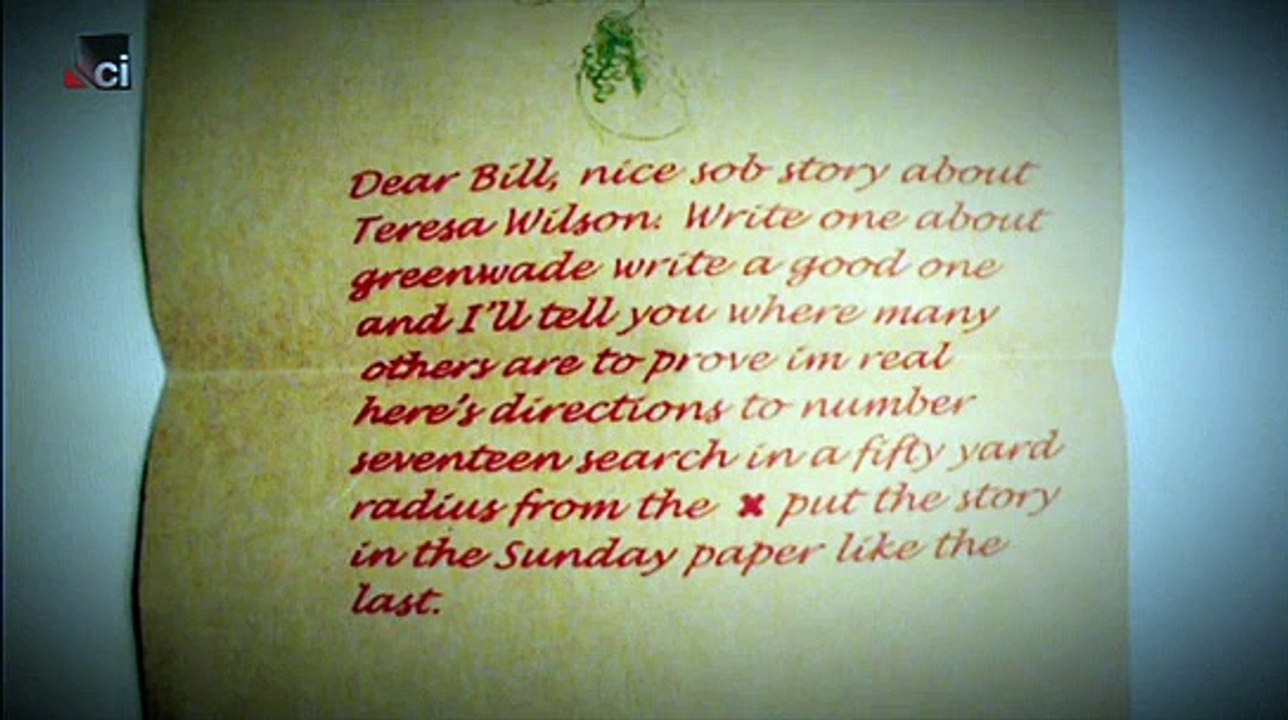 ci
Dear Bill, nice sob story about
Teresa Wilson. Write one about
greenwade write a good one
and I'll tell you where many
others are to prove im real
here's directions to number
seventeen search in a fifty yard
radius from the × put the story
in the Sunday paper like the
last.